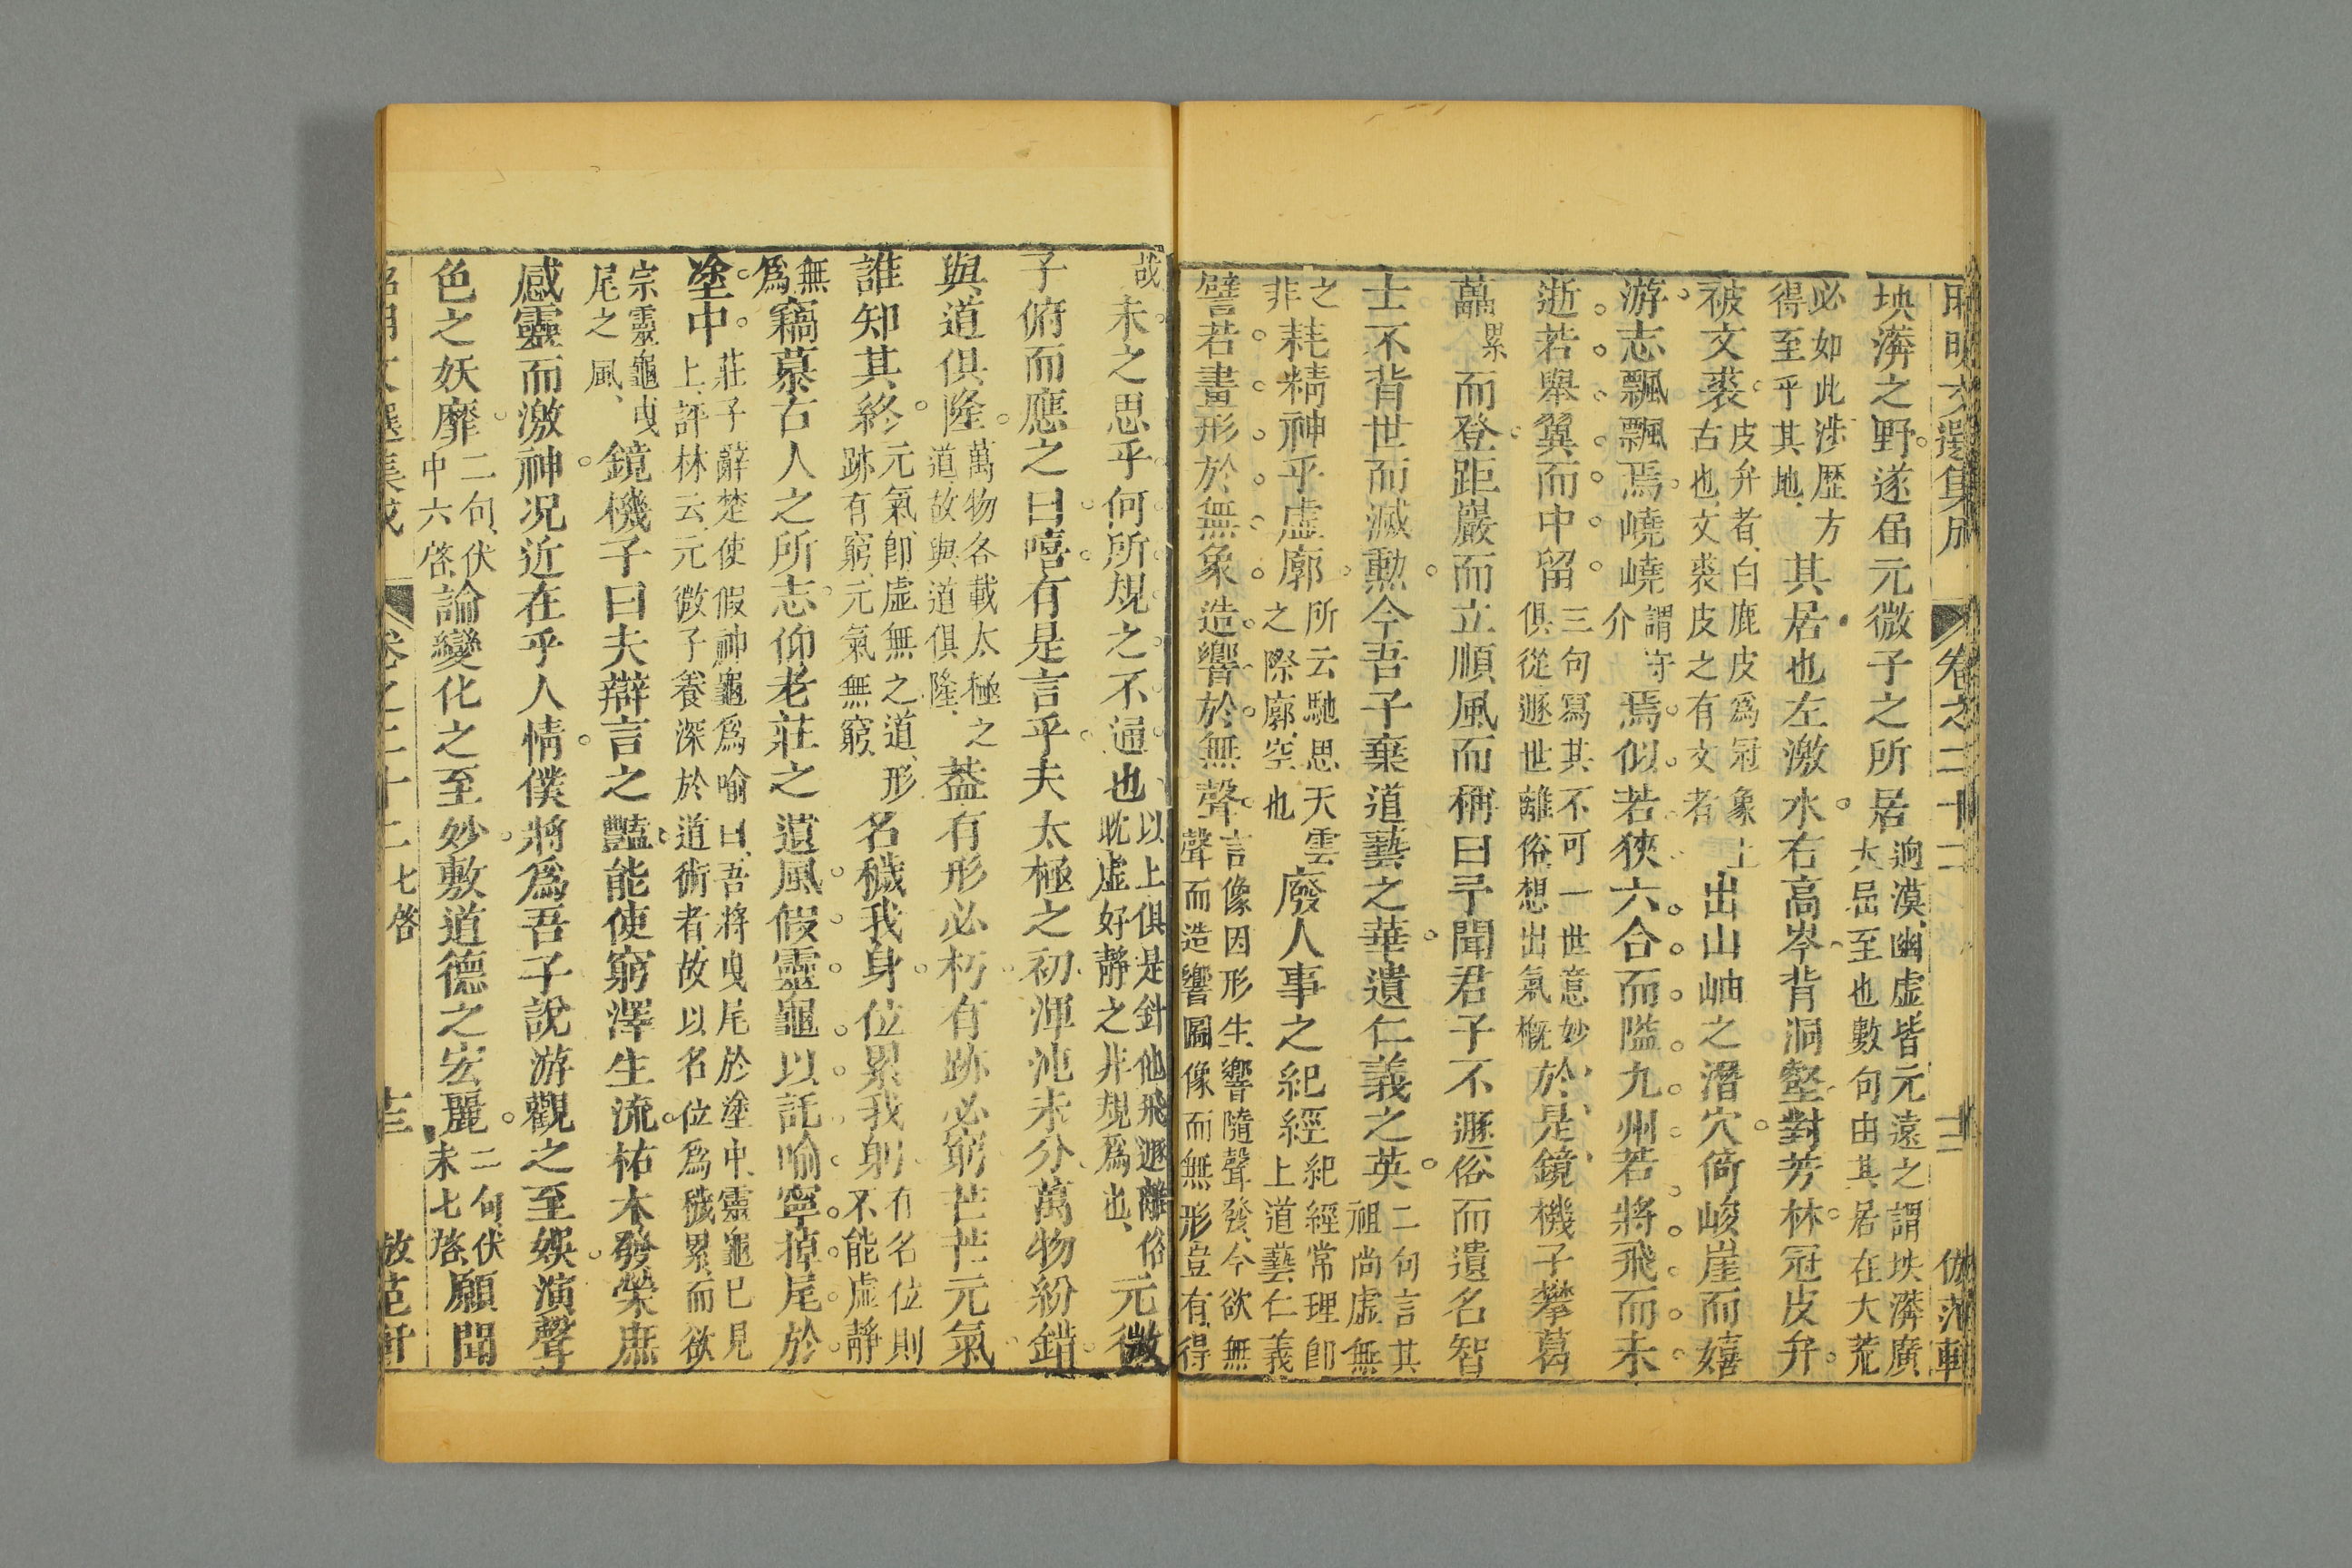 昭明文選集成 卷之二十二 十二 倣范軒
坱漭之野遂屆元微子之所居 逈漠幽虛皆元遠之謂坱漭廣 大屆至也數句由其居在大荒
必如此涉歷方 得至乎其地 其居也左激水右高岑背洞壑對芳林冠皮弁
被文裘 皮弁者白鹿皮爲冠象上 古也文裘皮之有文者 出山岫之潛穴倚峻崖而嬉
游志飄飄焉嶢嶢 謂守 介 焉似若狹六合而隘九州若將飛而未
逝若舉翼而中留 三句寫其不可一世意妙 俱從遯世離俗想出氣概 於是鏡機子攀葛
藟 累 而登距巖而立順風而稱曰予聞君子不遯俗而遺名智
士不背世而滅勳今吾子棄道藝之華遺仁義之英 二句言其 祖尚虛無
之 非 耗精神乎虛廓 所云馳思天雲 之際廓空也 廢人事之紀經 紀經常理卽 上道藝仁義
譬若畫形於無象造響於無聲 言像因形生響隨聲發今欲無 聲而造響圖像而無形豈有得
哉 未之思乎何所規之不通也 以上俱是針他飛遯離俗 耽虛好靜之非規爲也 元微
子俯而應之曰嘻有是言乎夫太極之初渾沌未分萬物紛錯
與道俱隆 萬物各載太極之 道故與道俱隆 葢有形必朽有跡必窮芒芒元氣
誰知其終 元氣卽虛無之道形 跡有窮元氣無窮 名穢我身位累我躬 有名位則 不能虛靜
無 爲 竊慕古人之所志仰老莊之遺風假靈龜以託喻寧掉尾於
塗中 莊子辭楚使假神龜爲喻曰吾將曳尾於塗中靈龜已見 上評林云元微子養深於道術者故以名位爲穢累而欲
宗靈龜曳 尾之風 鏡機子曰夫辯言之豔能使窮澤生流枯木發榮庶
感靈而激神况近在乎人情僕將爲吾子說游觀之至娛演聲
色之妖靡 二句伏 中六啓 論變化之至妙敷道德之宏麗 二句伏 末七啓 願聞
昭明文選集成 卷之二十二 七啓 十三 倣范軒